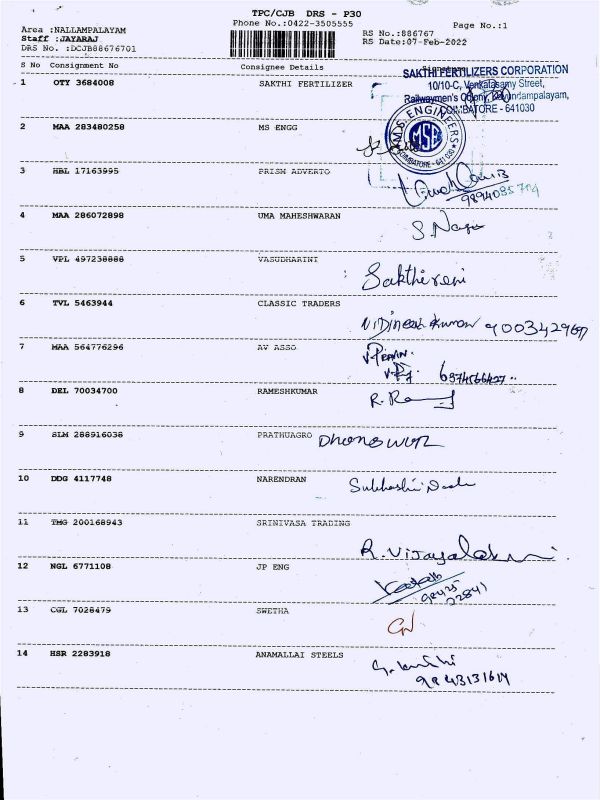 TPC/CJB DRS - P30
Phone No.:0422-3505555
Page No.:1
Area :NALLAMPALAYAM
Staff :JAYARAJ
DRS No. :DCJB88676701
RS No.:886767
RS Date:07-Feb-2022
S No Consignment No Consignee Details
SAKTHI FERTILIZERS CORPORATION
10/10-C, Venkatasamy Street,
Railwaymen's Colony, Kavundampalayam,
COIMBATORE - 641030
1 OTY 3684008 SAKTHI FERTILIZER
M.D.S. ENGINEERS
MSE
COIMBATORE - 641 030
2 MAA 283480258 MS ENGG
3 HBL 17163995 PRISM ADVERTO
4 MAA 286072898 UMA MAHESHWARAN
S. Naga
5 VPL 497238888 VASUDHARINI
Sakthireni
6 TVL 5463944 CLASSIC TRADERS
V. Dinesh Kumar
7 MAA 564776296 AV ASSO
8 DEL 70034700 RAMESHKUMAR
9 SLM 288916038 PRATHUAGRO
10 DDG 4117748 NARENDRAN
11 TMG 200168943 SRINIVASA TRADING
R. Vijayalakshmi
12 NGL 6771108 JP ENG
13 CGL 7028479 SWETHA
14 HSR 2283918 ANAMALLAI STEELS